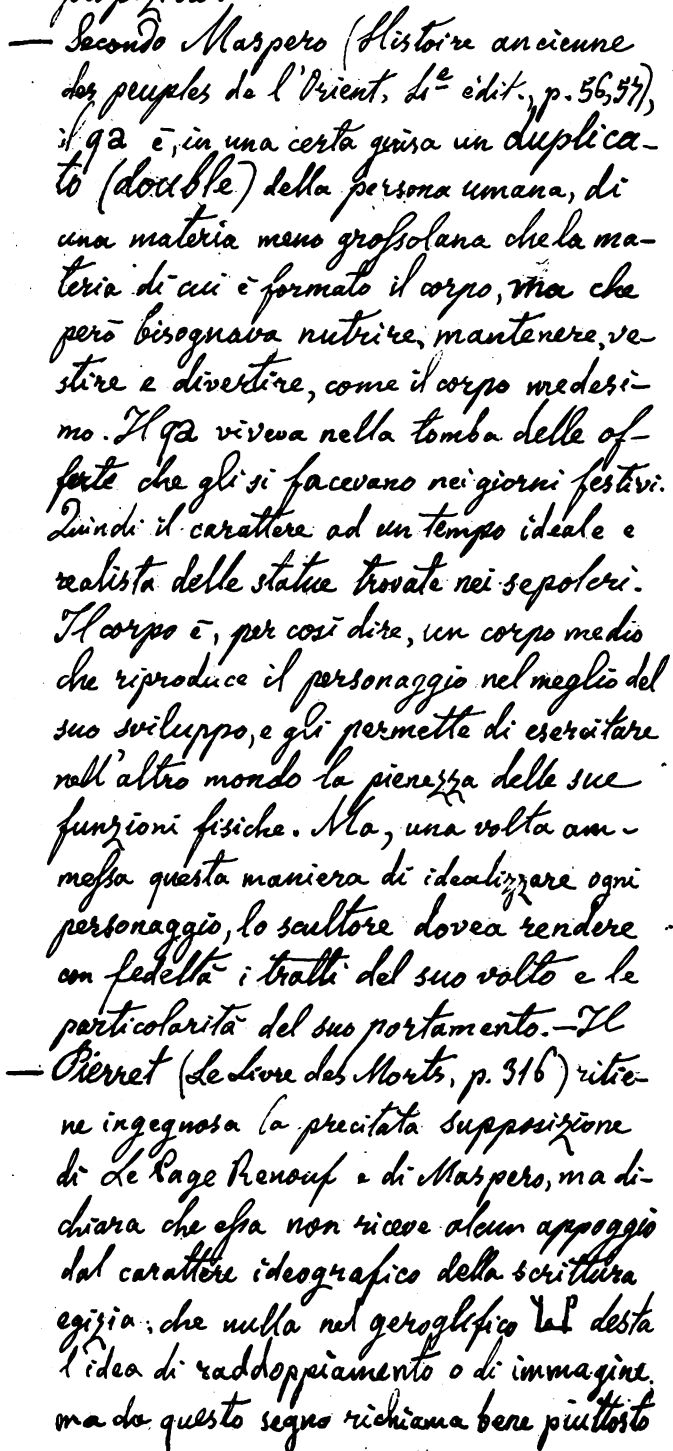 — Secondo Maspero (Histoire ancienne
des peuples de l'Orient, 4ᵉ édit., p. 56, 57),
il qa è, in una certa guisa un duplica-
to (double) della persona umana, di
una materia meno grossolana che la ma-
teria di cui è formato il corpo, ma che
però bisognava nutrire, mantenere, ve-
stire e divertire, come il corpo medesi-
mo. Il qa viveva nella tomba delle of-
ferte che gli si facevano nei giorni festivi.
Quindi il carattere ad un tempo ideale e
realista delle statue trovate nei sepolcri.
Il corpo è, per così dire, un corpo medio
che riproduce il personaggio nel meglio del
suo sviluppo, e gli permette di esercitare
nell'altro mondo la pienezza delle sue
funzioni fisiche. Ma, una volta am-
messa questa maniera di idealizzare ogni
personaggio, lo scultore dovea rendere
con fedeltà i tratti del suo volto e le
particolarità del suo portamento. — Il
— Pierret (Le Livre des Morts, p. 316) ritie-
ne ingegnosa la precitata supposizione
di Le Page Renouf e di Maspero, ma di-
chiara che essa non riceve alcun appoggio
dal carattere ideografico della scrittura
egizia; che nulla nel geroglifico desta
l'idea di raddoppiamento o di immagine,
ma da questo segno richiama bene piuttosto